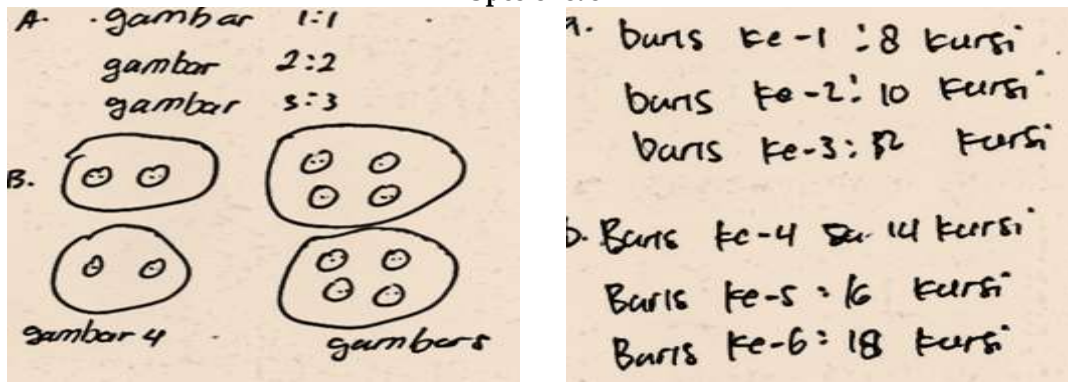 A. gambar 1:1
gambar 2:2
gambar 3:3
B.
gambar 4
gambar 5
a. baris ke-1 : 8 kursi
baris ke-2 : 10 kursi
baris ke-3 : 12 kursi
b. Baris ke-4 14 kursi
Baris ke-5 : 16 kursi
Baris ke-6 : 18 kursi